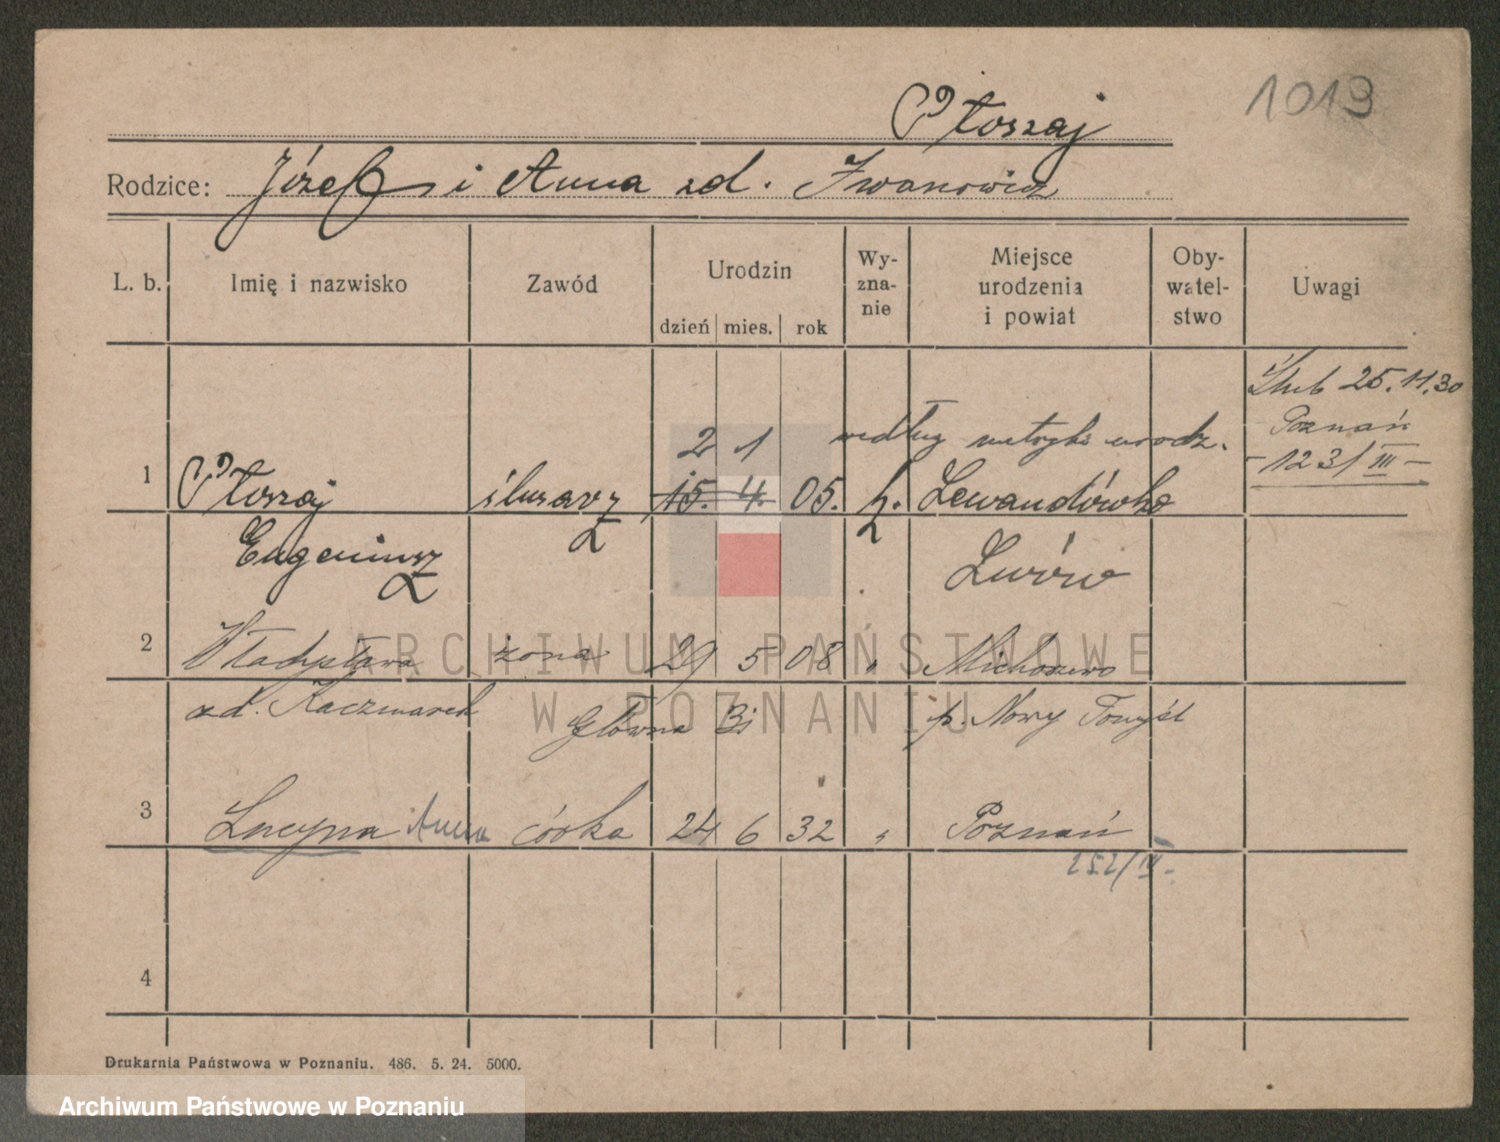 1013
Płoszaj
Rodzice: Józef i Anna zd. Iwanowicz
L. b. Imię i nazwisko Zawód Urodzin Wy-zna-nie Miejsce urodzenia i powiat Oby-watel-stwo Uwagi
dzień mies. rok
Ślub 25.11.30
Poznań
1231/III
2 1 według metryki urodz.
1 Płoszaj ślusarz 15. 4. 05. k. Lewandówka
Eugeniusz Lwów
2 Władysława żona 29 5 08 " Michorzewo
zd. Kaczmarek Główna p. Nowy Tomyśl
3 Lucyna Anna córka 24 6 32 " Poznań
252/IV
4
Drukarnia Państwowa w Poznaniu. 486. 5. 24. 5000.
ARCHIWUM PAŃSTWOWE
W POZNANIU
Archiwum Państwowe w Poznaniu